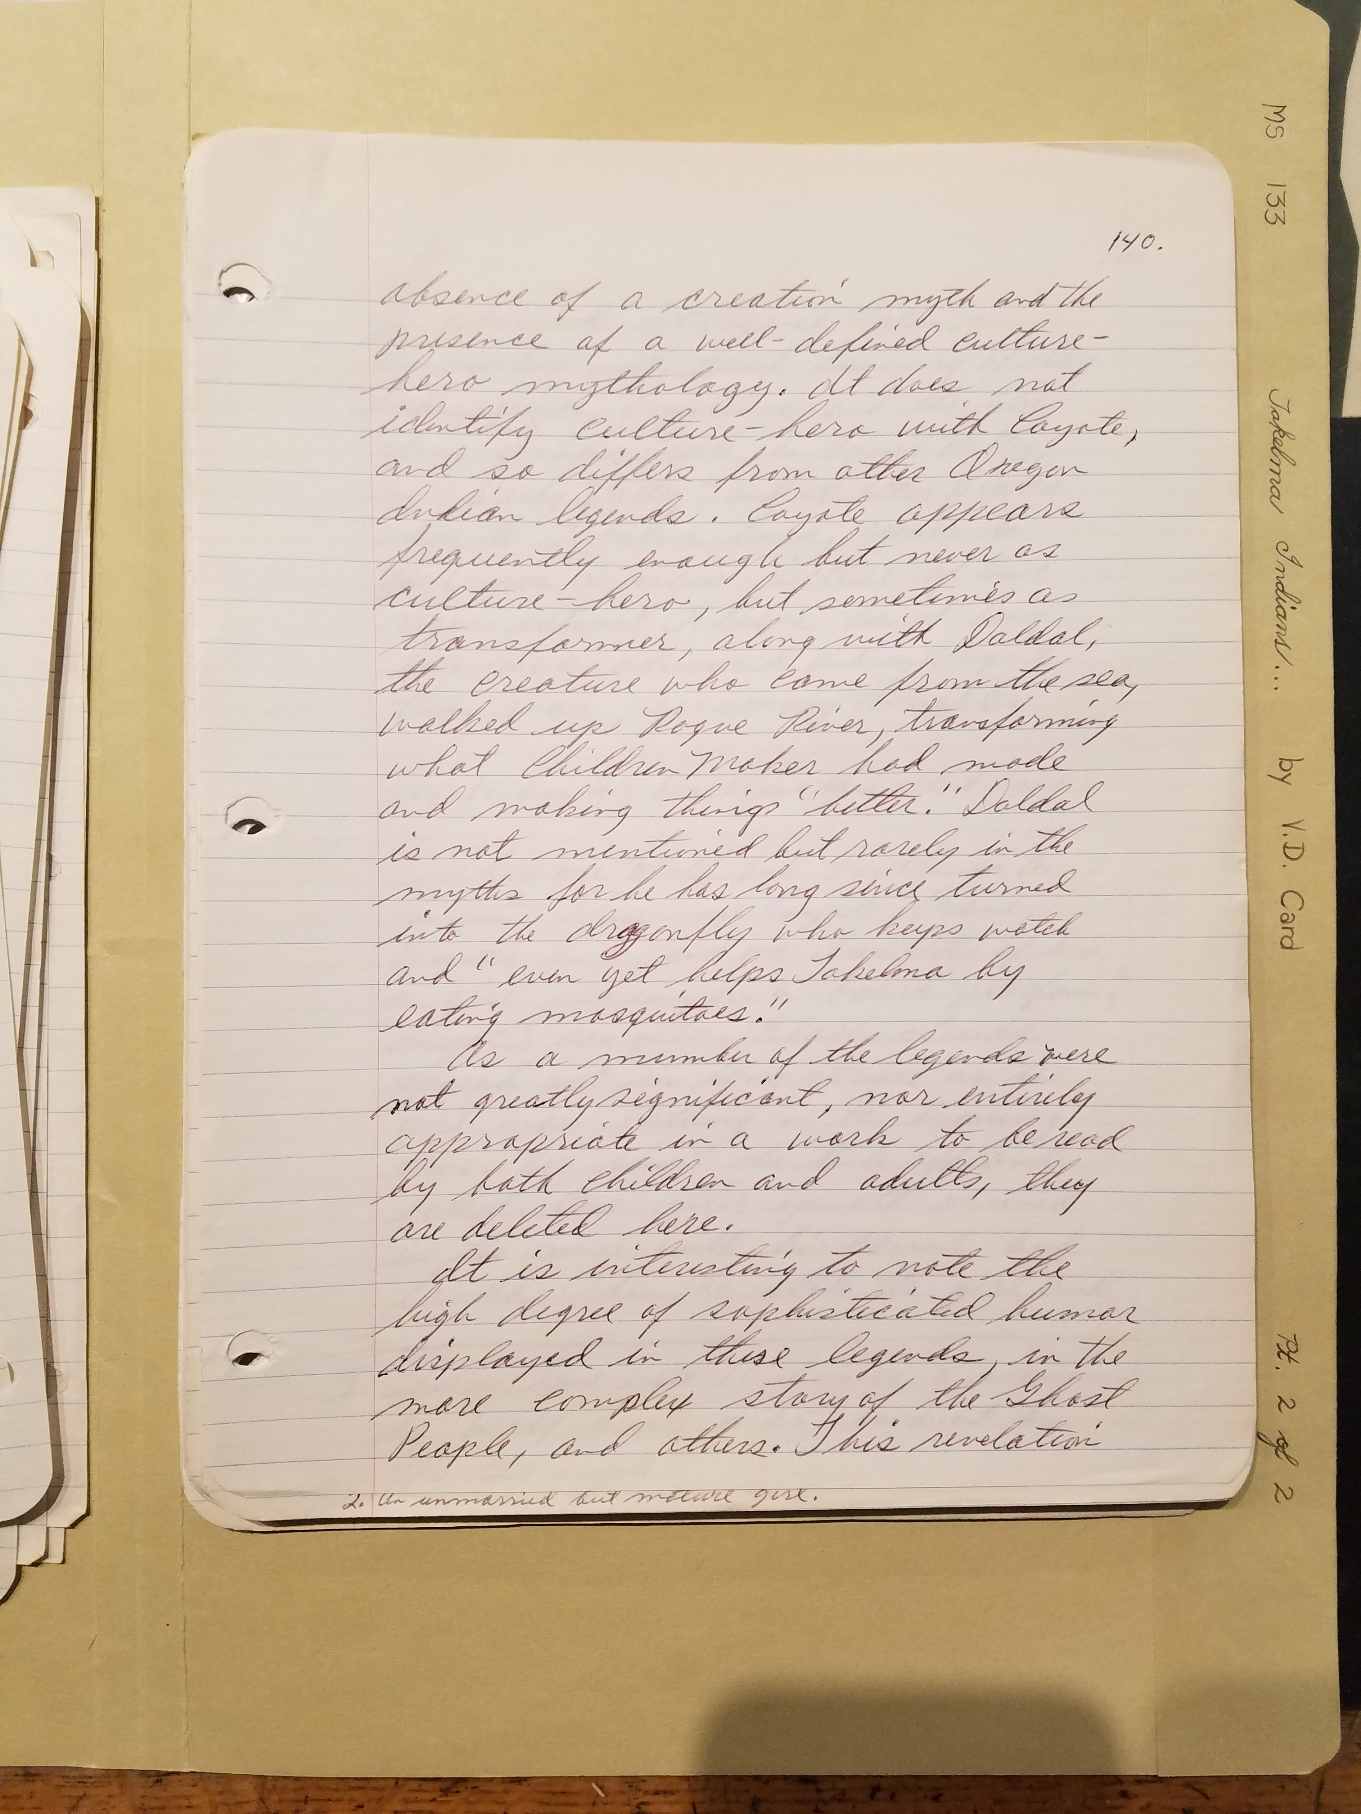 140.
absence of a creation myth and the
presence of a well-defined culture-
hero mythology. It does not
identify culture-hero with Coyote,
and so differs from other Oregon
Indian legends. Coyote appears
frequently enough but never as
culture-hero, but sometimes as
transformer, along with Daldal,
the creature who came from the sea,
walked up Rogue River, transforming
what Children Maker had made
and making things "better." Daldal
is not mentioned but rarely in the
myths for he has long since turned
into the dragonfly who keeps watch
and "even yet helps Takelma by
eating mosquitoes."
As a number of the legends were
not greatly significant, nor entirely
appropriate in a work to be read
by both children and adults, they
are deleted here.
It is interesting to note the
high degree of sophisticated humor
displayed in these legends, in the
more complex story of the Ghost
People, and others. This revelation
2. An unmarried but mature girl.
MS 133 Takelma Indians... by V.D. Card Pt. 2 of 2